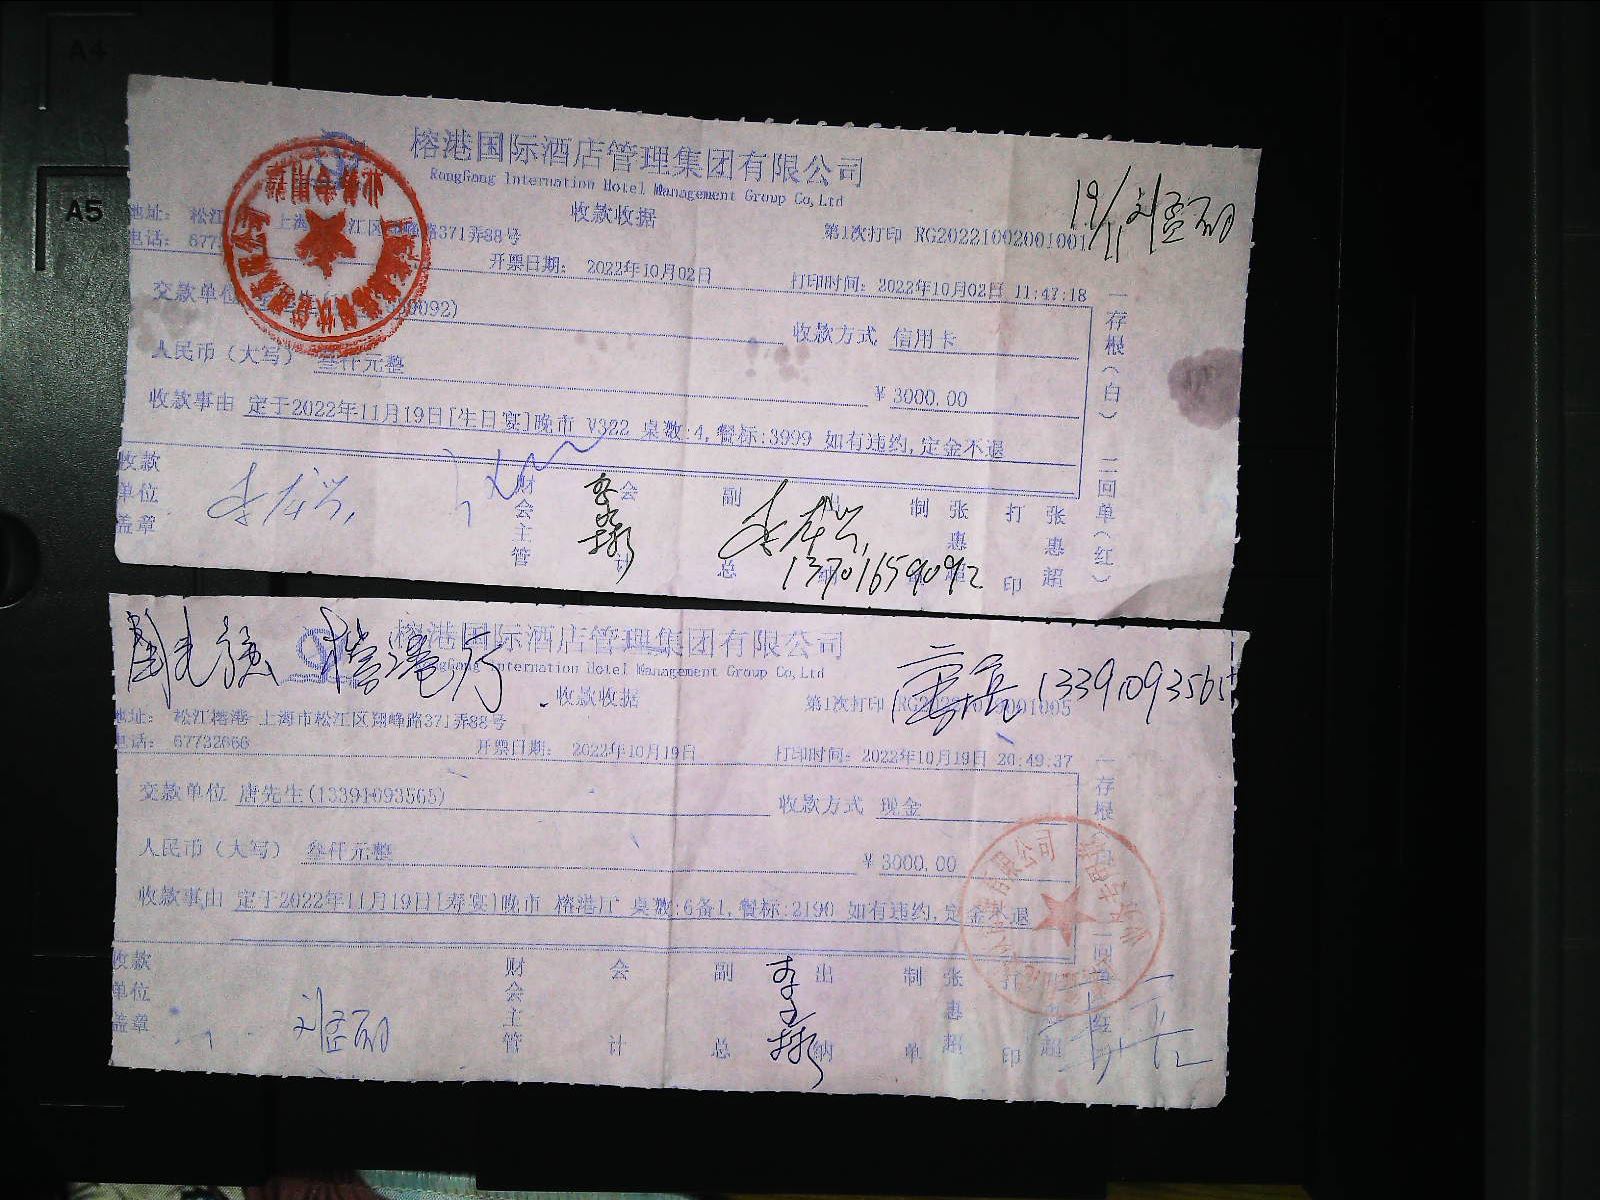 A4
A5
榕港国际酒店管理集团有限公司
RongGang Internation Hotel Management Group Co,Ltd
收款收据
19/11 刘孟西
地址: 松江 上海 江区 峰路371弄88号
第1次打印 RG20221002001001
电话: 677
开票日期: 2022年10月02日
打印时间: 2022年10月02日 11:47:18
交款单位 0092)
收款方式 信用卡
人民币(大写) 叁仟元整
¥ 3000.00
收款事由 定于2022年11月19日[生日宴]晚市 V322 桌数:4,餐标:3999 如有违约,定金不退
一存根(白) 二回单(红)
收款单位盖章
财会主管
会计
副总
出纳
制单 张惠超
打印 张惠超
13701659092
榕港国际酒店管理集团有限公司
RongGang Internation Hotel Management Group Co,Ltd
榕港厅
唐兵 13391093565
收款收据
地址: 松江榕港 上海市松江区翔峰路371弄88号
第1次打印 RG20221019001005
电话: 67732666
开票日期: 2022年10月19日
打印时间: 2022年10月19日 20:49:37
交款单位 唐先生(13391093565)
收款方式 现金
人民币(大写) 叁仟元整
¥ 3000.00
收款事由 定于2022年11月19日[寿宴]晚市 榕港厅 桌数:6备1,餐标:2190 如有违约,定金不退
一存根(白) 二回单(红)
有限公司
收款单位盖章
财会主管
会计
副总
出纳
制单 张惠超
打印 张惠超